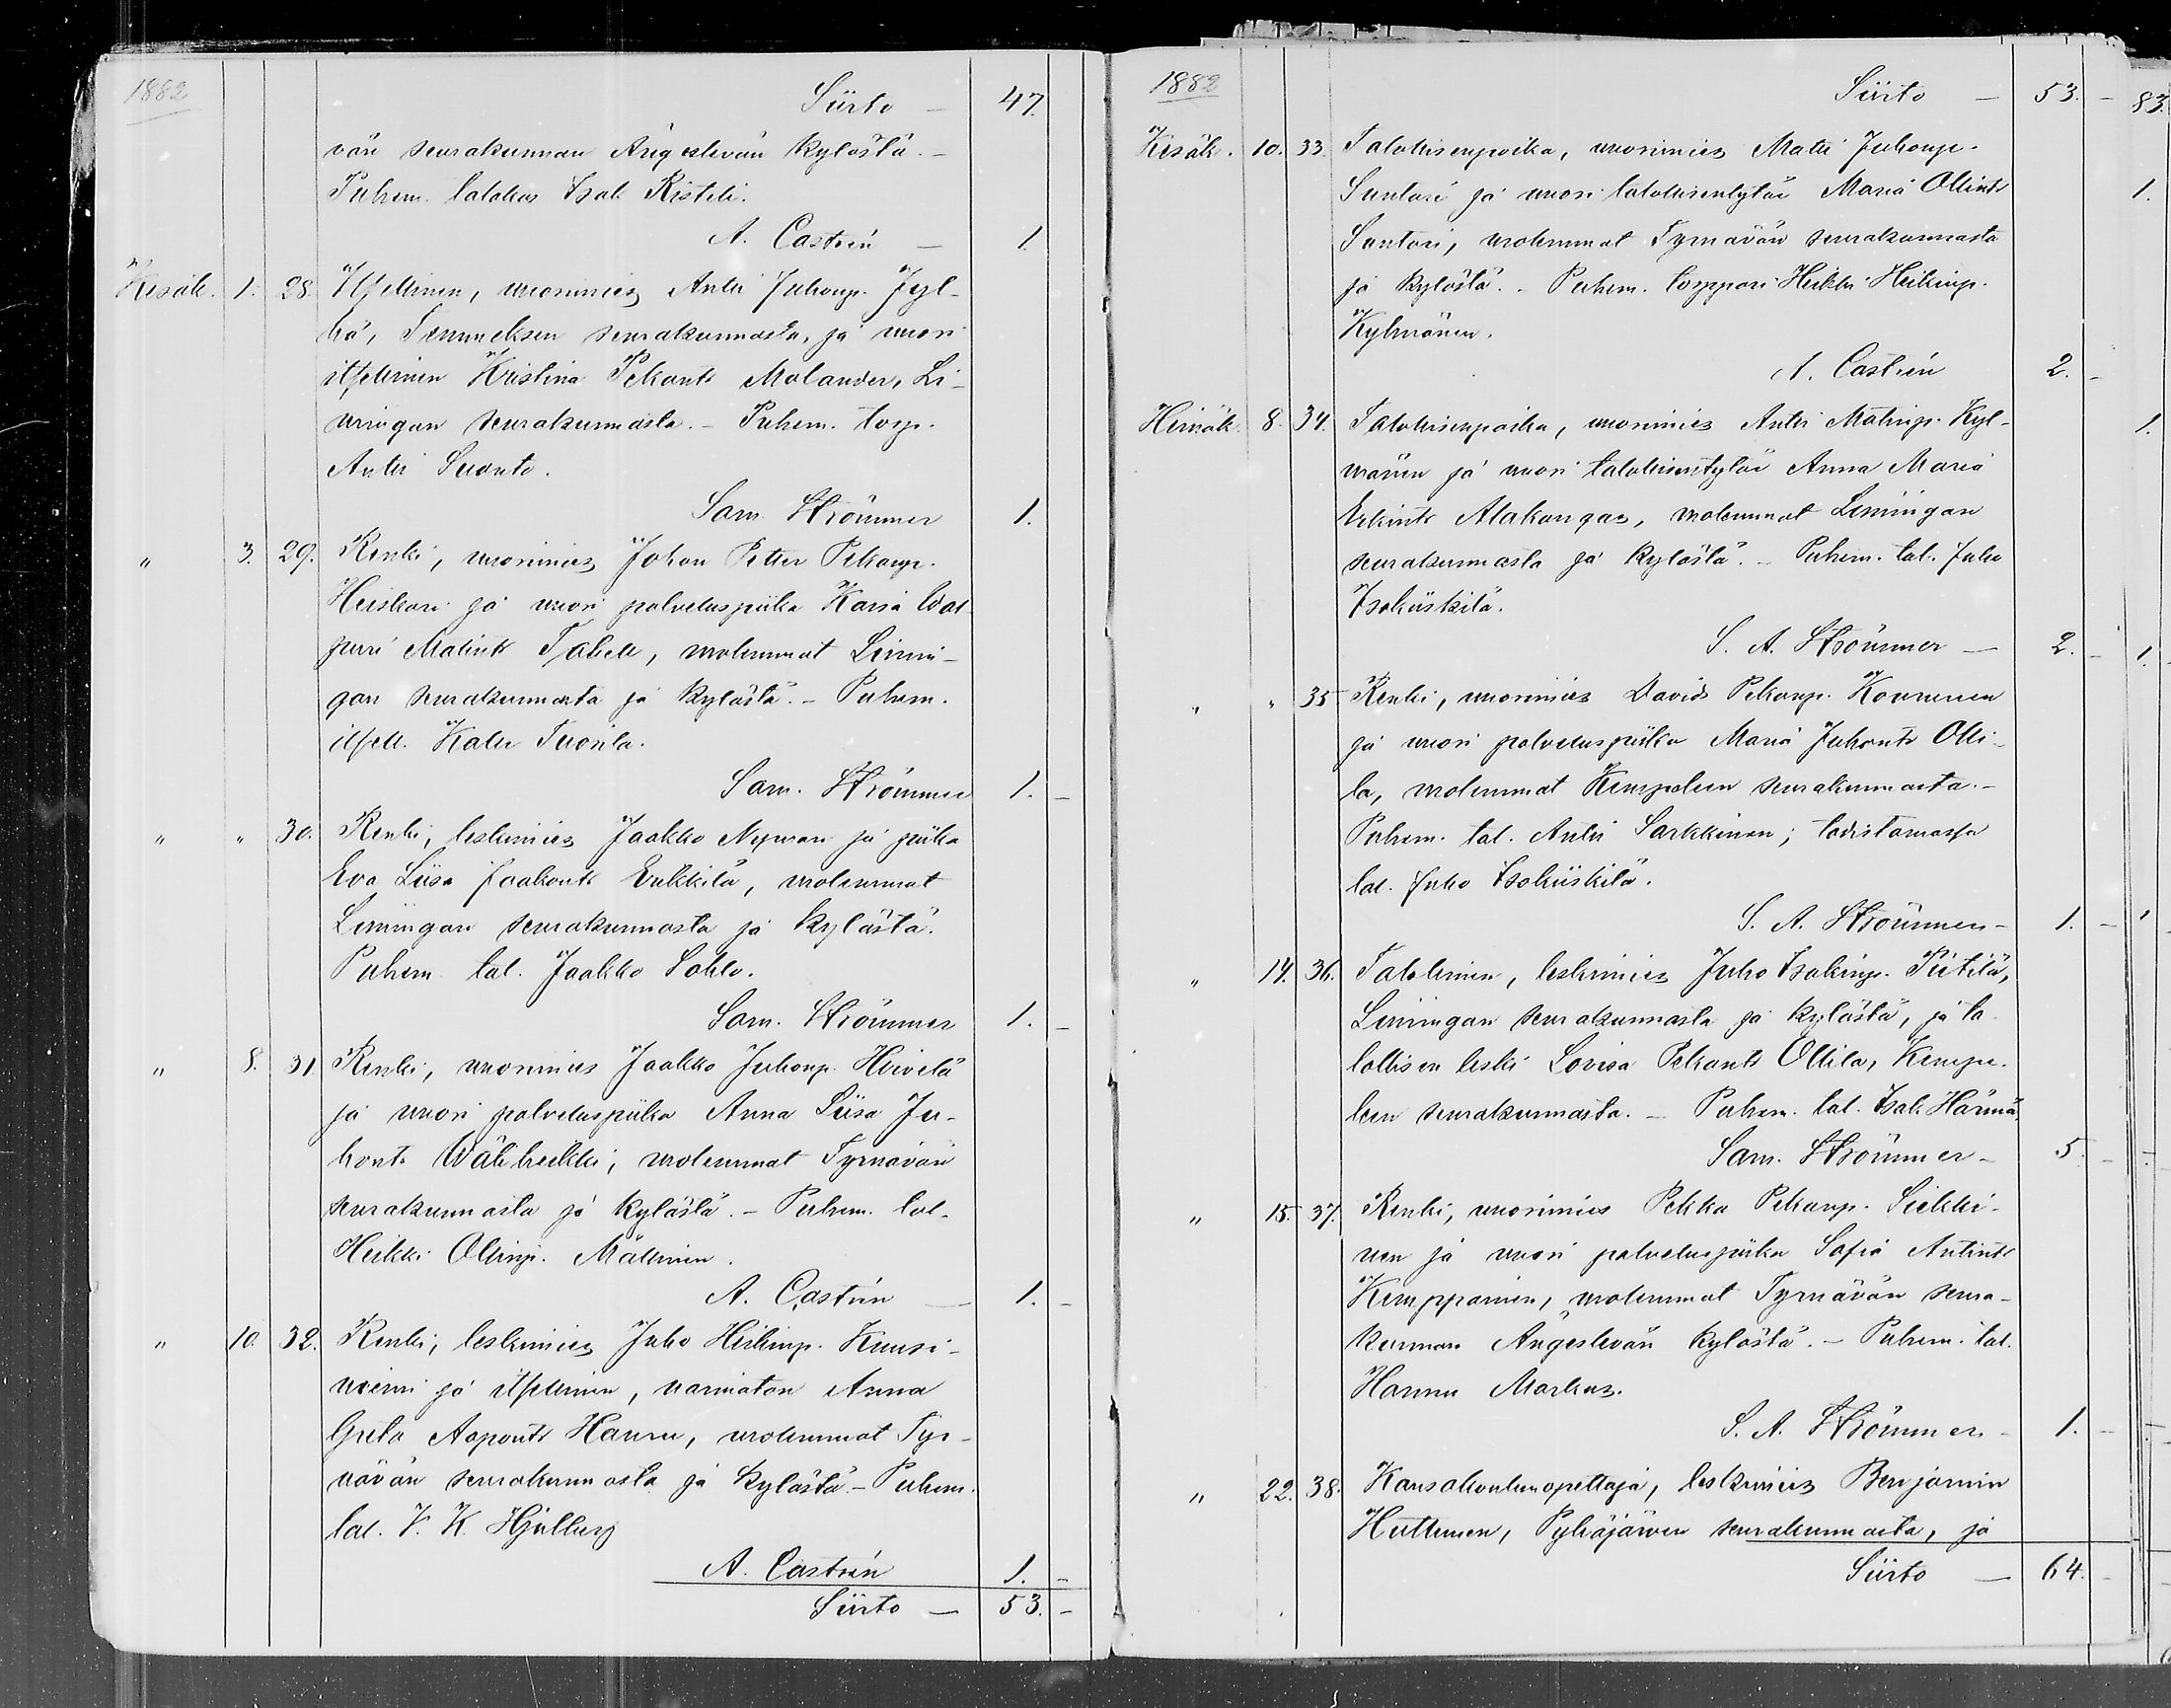 1882
Siirto — 47.
vän seurakunnan Ängeslevän kylästä. –
Puhem. talokas Isak Risteli.
A. Castrén — 1.
Kesäk. 1. 28. Itsellinen, nuorimies Antti Juhonp. Jyl-
hä, Temmeksen seurakunnasta, ja nuori
itsellinen Kristina Pekant. Molander, Li-
mingan seurakunnasta. – Puhem. torp.
Antti Suonto.
Sam. Strömmer 1.
" 3. 29. Renki, nuorimies Johan Petter Pekanp.
Heiskari ja nuori palveluspiika Kaisa Wal-
puri Matint. Tabell, molemmat Limin-
gan seurakunnasta ja kylästä. – Puhem.
itsell. Kalle Tuorila.
Sam. Strömmer 1. –
" " 30. Renki, leskimies Jaakko Nyman ja piika
Eva Liisa Jaakont. Erkkilä, molemmat
Limingan seurakunnasta ja kylästä.
Puhem. tal. Jaakko Sohlo.
Sam. Strömmer 1. –
" 8. 31. Renki, nuorimies Jaakko Juhonp. Hirvelä
ja nuori palveluspiika Anna Liisa Ju-
hont. Wäliheikki, molemmat Tyrnävän
seurakunnasta ja kylästä. – Puhem. tal.
Heikki Ollinp. Mällinen.
A. Castrén — 1. –
" 10. 32. Renki, leskimies Juho Heikinp. Kuusi-
niemi ja itsellinen, naimaton Anna
Greta Aapont. Hannu, molemmat Tyr-
nävän seurakunnasta ja kylästä. – Puhem.
tal. V. K. Hjellberg
A. Castrén 1. –
Siirto — 53. –
1882
Siirto — 53. – 83.
Kesäk. 10. 33. Talollisenpoika, nuorimies Matti Juhonp.
Suutari ja nuori talollisentytär Maria Ollint. 1.
Suutari, molemmat Tyrnävän seurakunnasta
ja kylästä. – Puhem. torppari Heikki Heikinp.
Kylmänen.
A. Castrén 2. –
Heinäk. 8. 34. Talollisenpoika, nuorimies Antti Matinp. Kyl- 1.
mänen ja nuori talollisentytär Anna Maria
Erkint. Alakangas, molemmat Limingan
seurakunnasta ja kylästä. – Puhem. tal. Juho
Isokiiskilä.
S. A. Strömmer — 2. – 1.
" " 35 Renki, nuorimies David Pekanp. Kounenen
ja nuori palveluspiika Maria Juhont. Olli-
la, molemmat Kempeleen seurakunnasta. –
Puhem. tal. Antti Sarkkinen; todistamassa
tal. Juho Isokiiskilä.
S. A. Strömmer – 1. – 1
" 14. 36. Talollinen, leskimies Juho Isakinp. Piitilä,
Limingan seurakunnasta ja kylästä, ja ta-
lollisen leski Lovisa Pekant. Ollila, Kempe-
leen seurakunnasta. – Puhem. tal. Isak Härmä.
Sam. Strömmer – 5. –
" 15. 37. Renki, nuorimies Pekka Pekanp. Siekki-
nen ja nuori palveluspiika Sofia Antint.
Kemppainen, molemmat Tyrnävän seura-
kunnan Ängeslevän kylästä. – Puhem. tal.
Hannu Markus.
S. A. Strömmer – 1. –
" 22. 38. Kansakoulunopettaja, leskimies Benjamin
Huttunen, Pyhäjärven seurakunnasta, ja
Siirto — 64. –